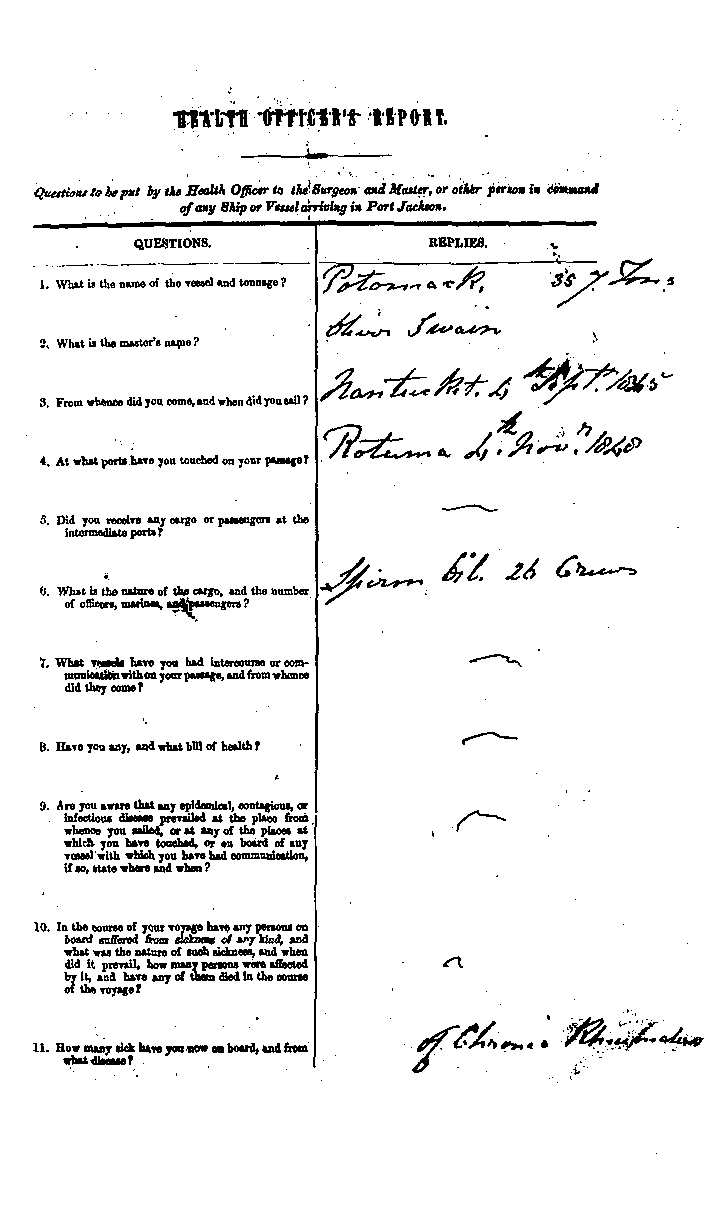 HEALTH OFFICER'S REPORT.
Questions to be put by the Health Officer to the Surgeon and Master, or other person in command
of any Ship or Vessel arriving in Port Jackson.
QUESTIONS.
REPLIES.
1. What is the name of the vessel and tonnage?
Potomack, 357 Tons
2. What is the master's name?
Oliver Swain
3. From whence did you come, and when did you sail?
Nantucket. 4th Sept. 1845
4. At what ports have you touched on your passage?
Rotuma 4th Novr. 1848
5. Did you receive any cargo or passengers at the
intermediate ports?
6. What is the nature of the cargo, and the number
of officers, marines, and passengers?
Sperm Oil. 26 Crews
7. What vessels have you had intercourse or com-
munication with on your passage, and from whence
did they come?
8. Have you any, and what bill of health?
9. Are you aware that any epidemical, contagious, or
infectious disease prevailed at the place from
whence you sailed, or at any of the places at
which you have touched, or on board of any
vessel with which you have had communication,
if so, state where and when?
10. In the course of your voyage have any persons on
board suffered from sickness of any kind, and
what was the nature of such sickness, and when
did it prevail, how many persons were affected
by it, and have any of them died in the course
of the voyage?
11. How many sick have you now on board, and from
what disease?
of Chronic